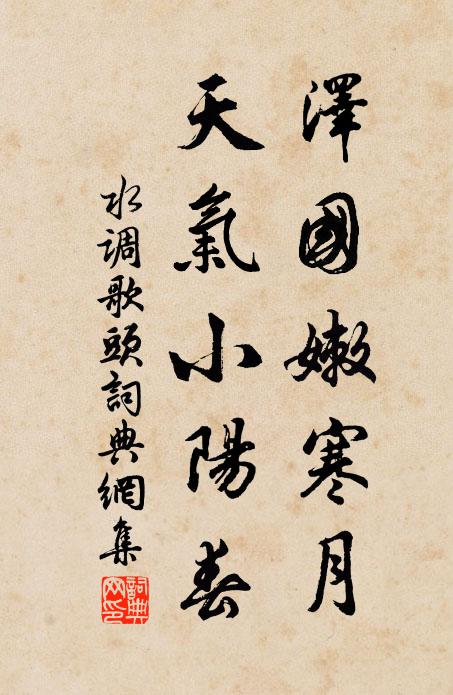 澤國嫩寒月
天氣小陽春
水调歌頭詞典網集
詞典
网印